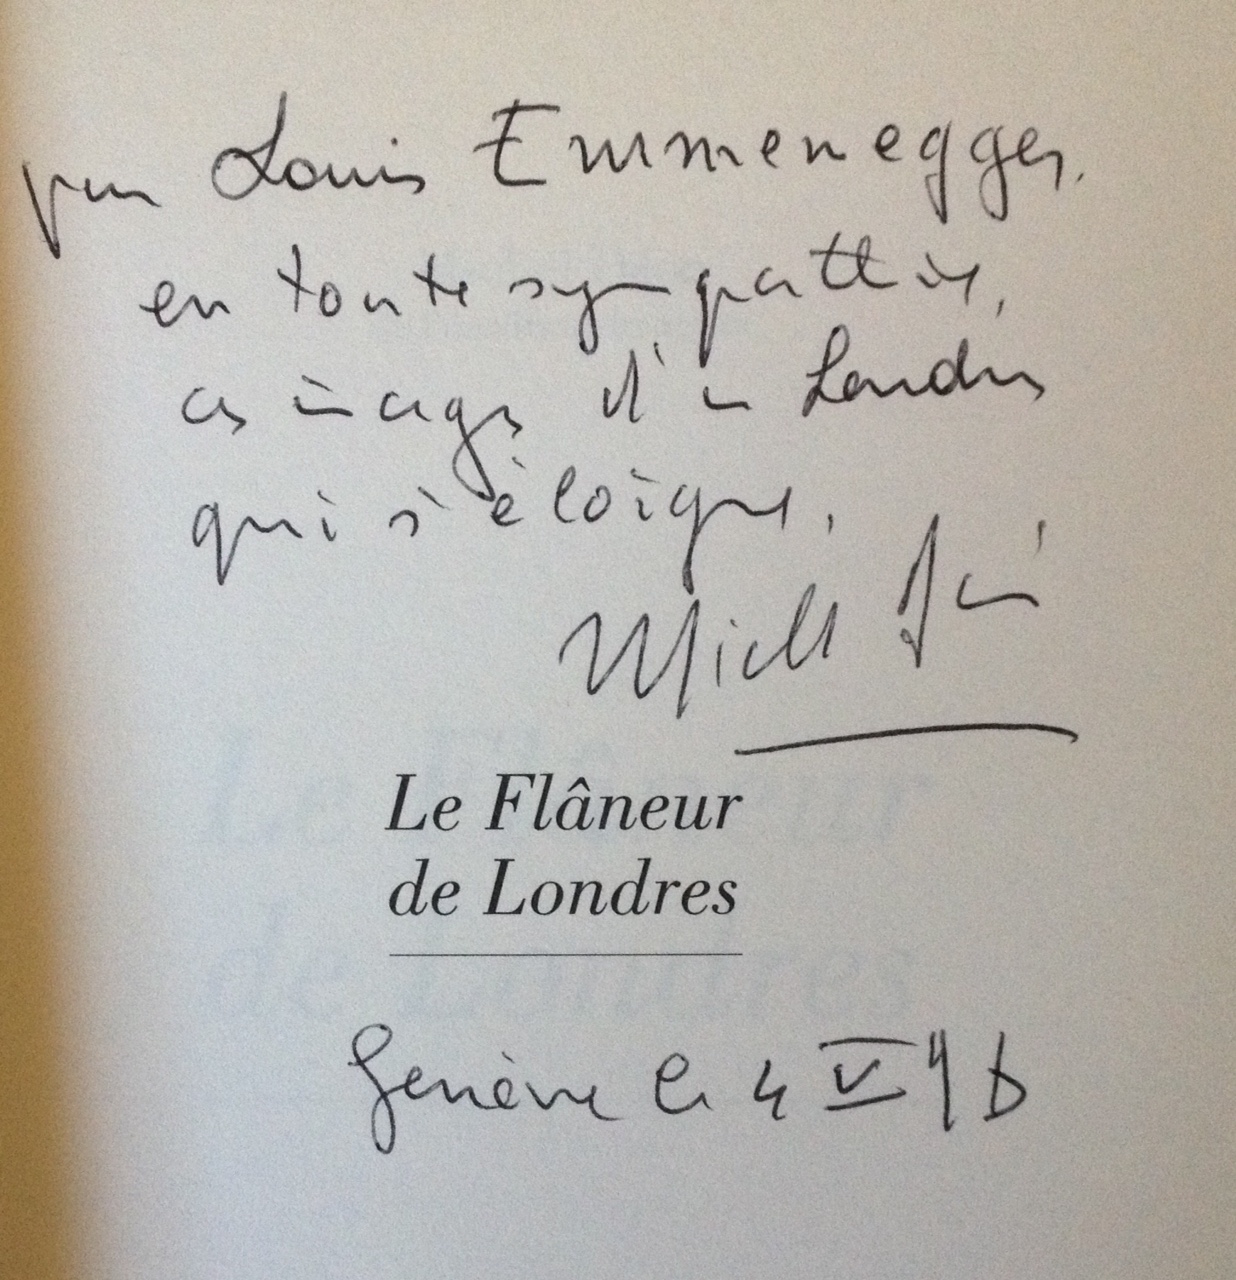 pour Louis Emmenegger,
en toute sympathie,
ces images d'un Londres
qui s'éloigne,
Michel
Le Flâneur
de Londres
Genève le 4 V 96